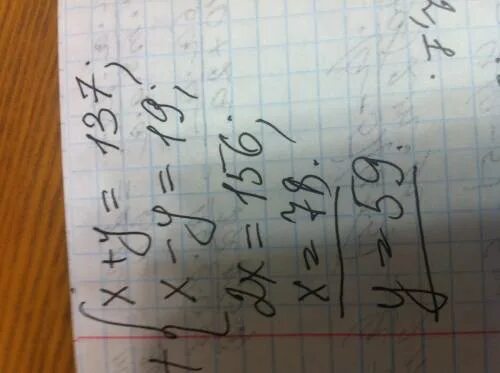 + { x + y = 137;
x - y = 19;
2x = 156;
x = 78.
y = 59.